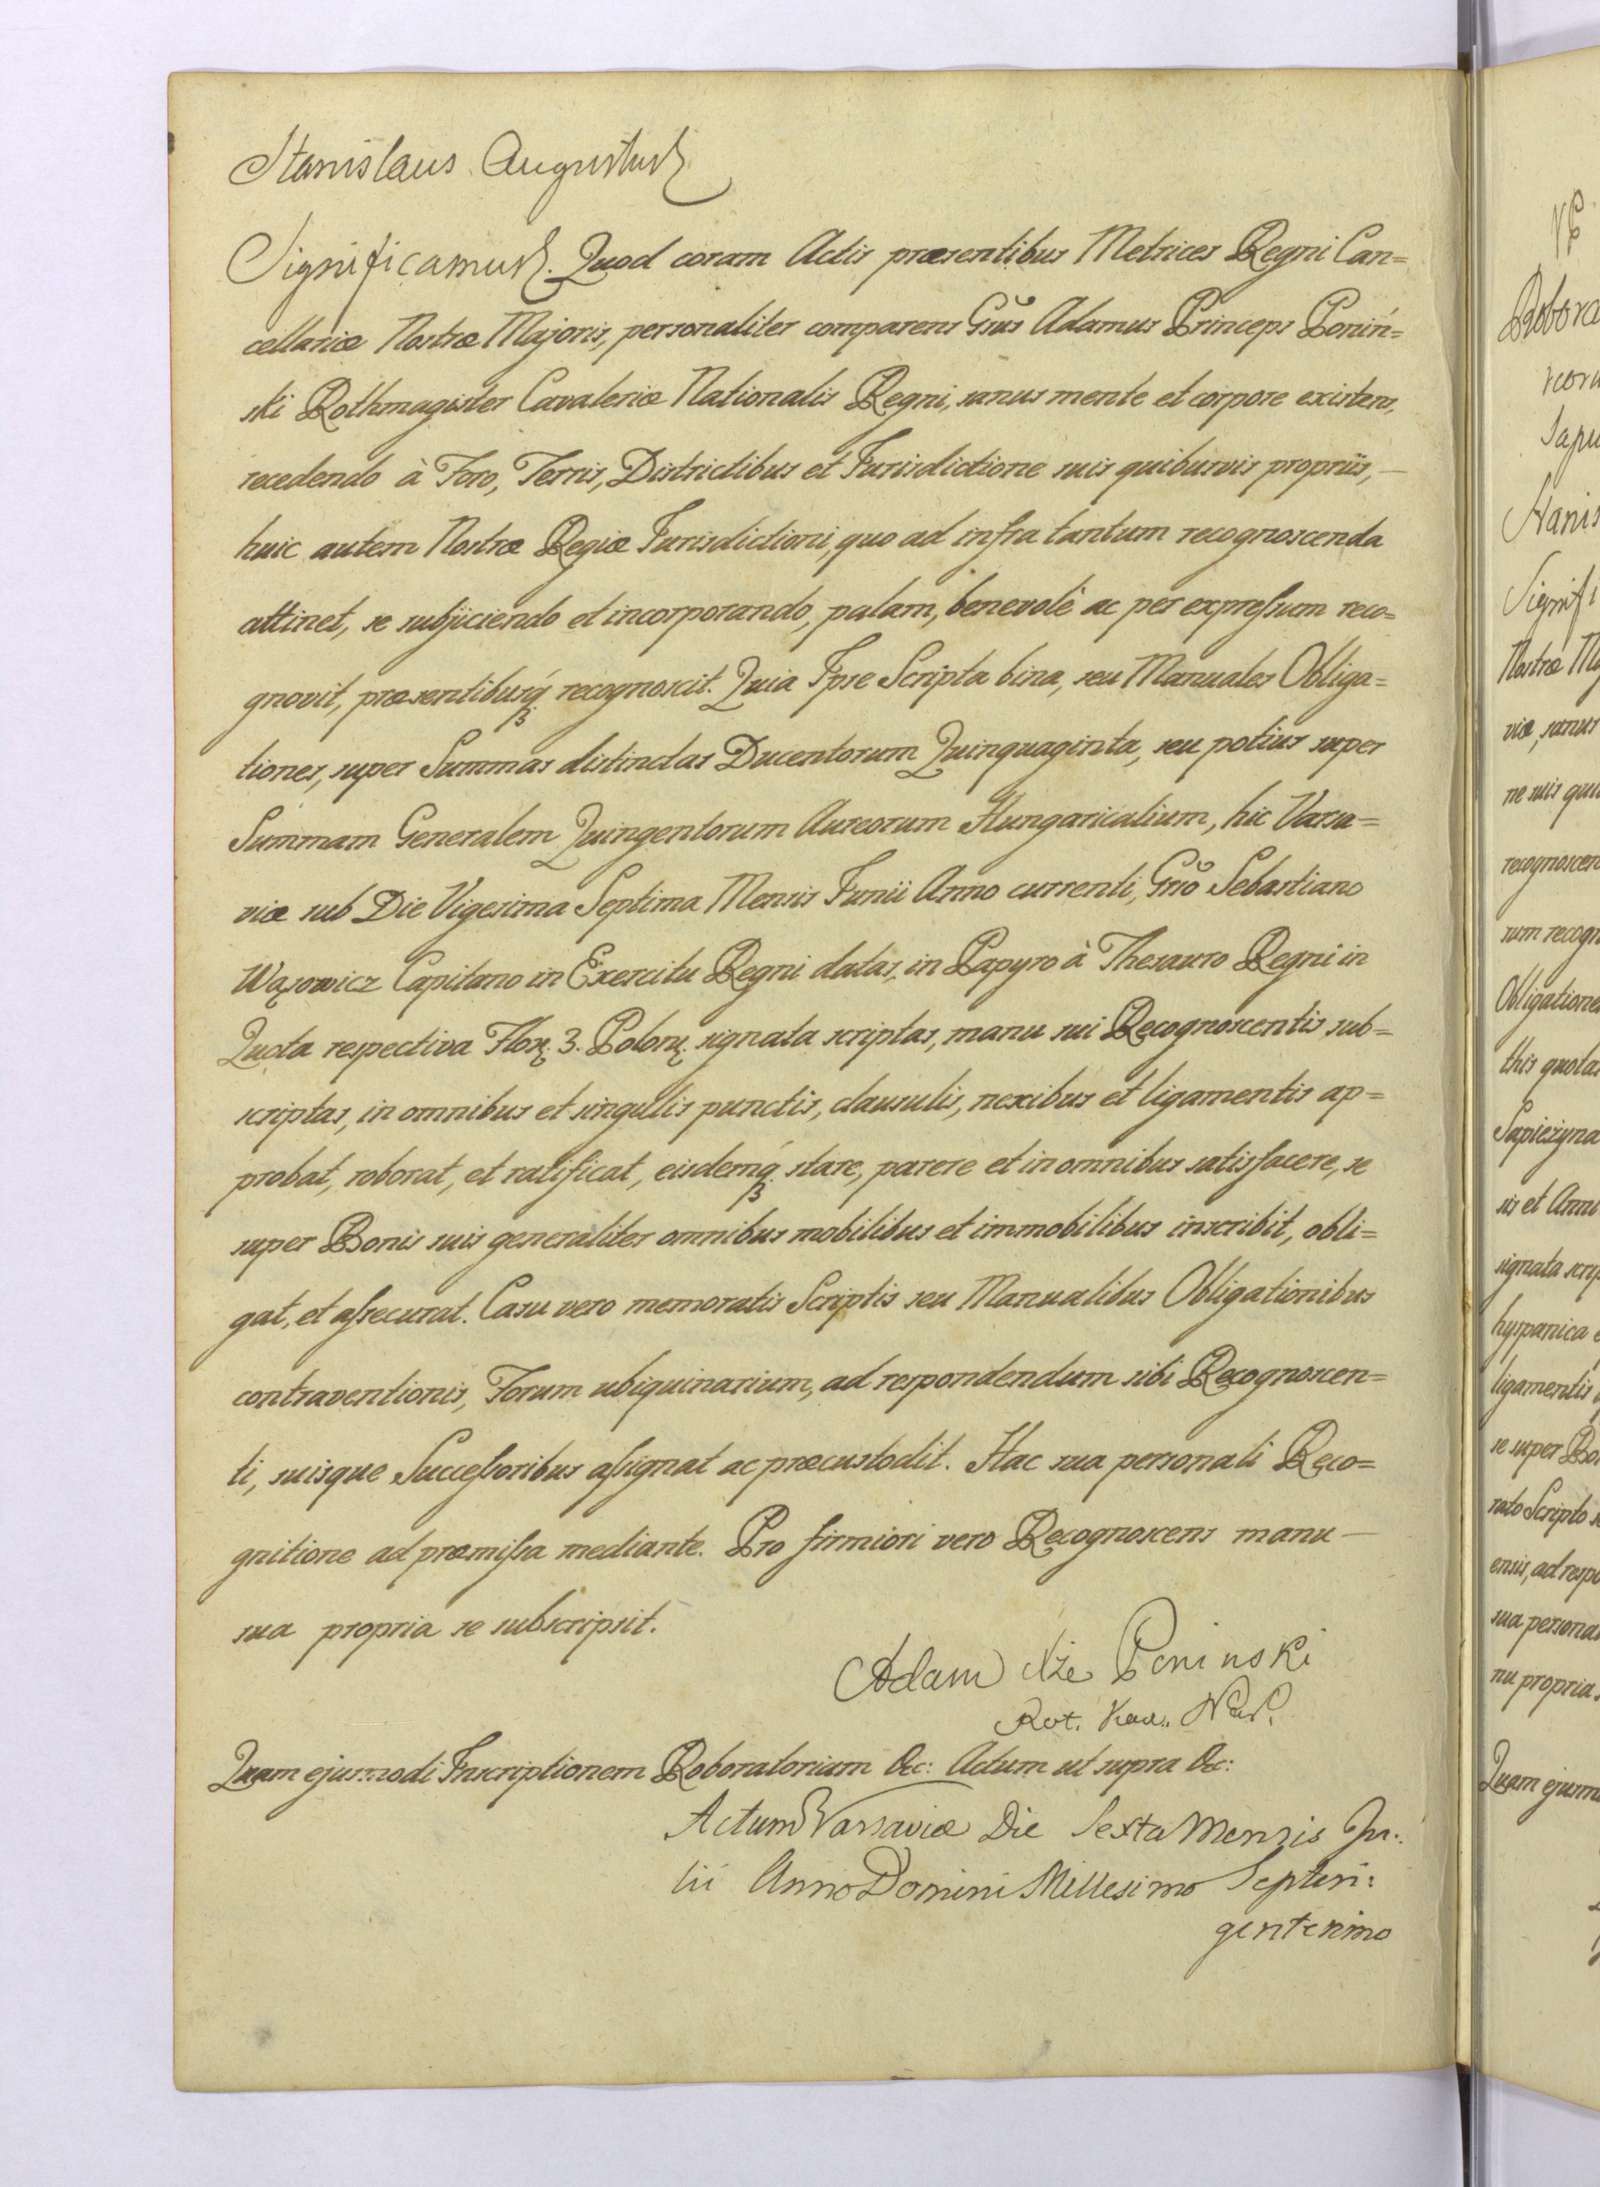 Stanislaus Augustus
Significamus. Quod coram Actis præsentibus Metrices Regni Can=
cellariæ Nostræ Majoris, personaliter comparens Gñus Adamus Princeps Poniń=
ski Rothmagister Cavaleriæ Nationalis Regni, sanus mente et corpore existens,
recedendo à Foro, Terris, Districtibus et Jurisdictione suis quibusvis propriis, —
huic autem Nostræ Regiæ Jurisdictioni, quo ad infra tantum recognoscenda
attinet, se subjiciendo et incorporando, palam, benevolè ac per expreſsum reco=
gnovit, præsentibusq́ recognoscit. Quia Ipse Scripta bina, seu Manuales Obliga=
tiones, super Summas distinctas Ducentorum Quinquaginta, seu potius super
Summam Generalem Quingentorum Aureorum Hungaricalium, hic Varsa=
viæ sub Die Vigesima Septima Mensis Junii Anno currenti, Gño Sebastiano
Wąsowicz Capitano in Exercitu Regni datas, in Papyro à Thesauro Regni in
Quota respectiva Flor. 3. Polon. signata scriptas, manu sui Recognoscentis sub=
scriptas, in omnibus et singulis punctis, clausulis, nexibus et ligamentis ap=
probat, roborat, et ratificat, eisdemq́ stare, parere et in omnibus satisfacere, se
super Bonis suis generaliter omnibus mobilibus et immobilibus inscribit, obli=
gat, et aſsecurat. Casu vero memoratis Scriptis seu Manualibus Obligationibus
contraventionis, Forum ubiquinarium, ad respondendum sibi Recognoscen=
ti, suisque Succeſsoribus aſsignat ac præcustodit. Hac sua personali Reco=
gnitione ad præmiſsa mediante. Pro firmiori vero Recognoscens manu —
sua propria se subscripsit.
Adam Xże Poninski
Rot. Kaw. Nar.
Quam ejusmodi Inscriptionem Roboratoriam &c: Actum ut supra &c:
Actum Varsaviæ Die Sexta Mensis Ju:
lii Anno Domini Millesimo Septin:
gentesimo
Robora
Stanis
Signifi
Nostræ
viæ, sanus
ne suis qui
recognoscen
sum recogn
Obligatione
this quota
Sapieżyna
sis et Anni
signata scrip
hyspanica
ligamentis
se super Bo
rato Scripto
ensis, ad resp
sua persona
nu propria
Quam ejusm